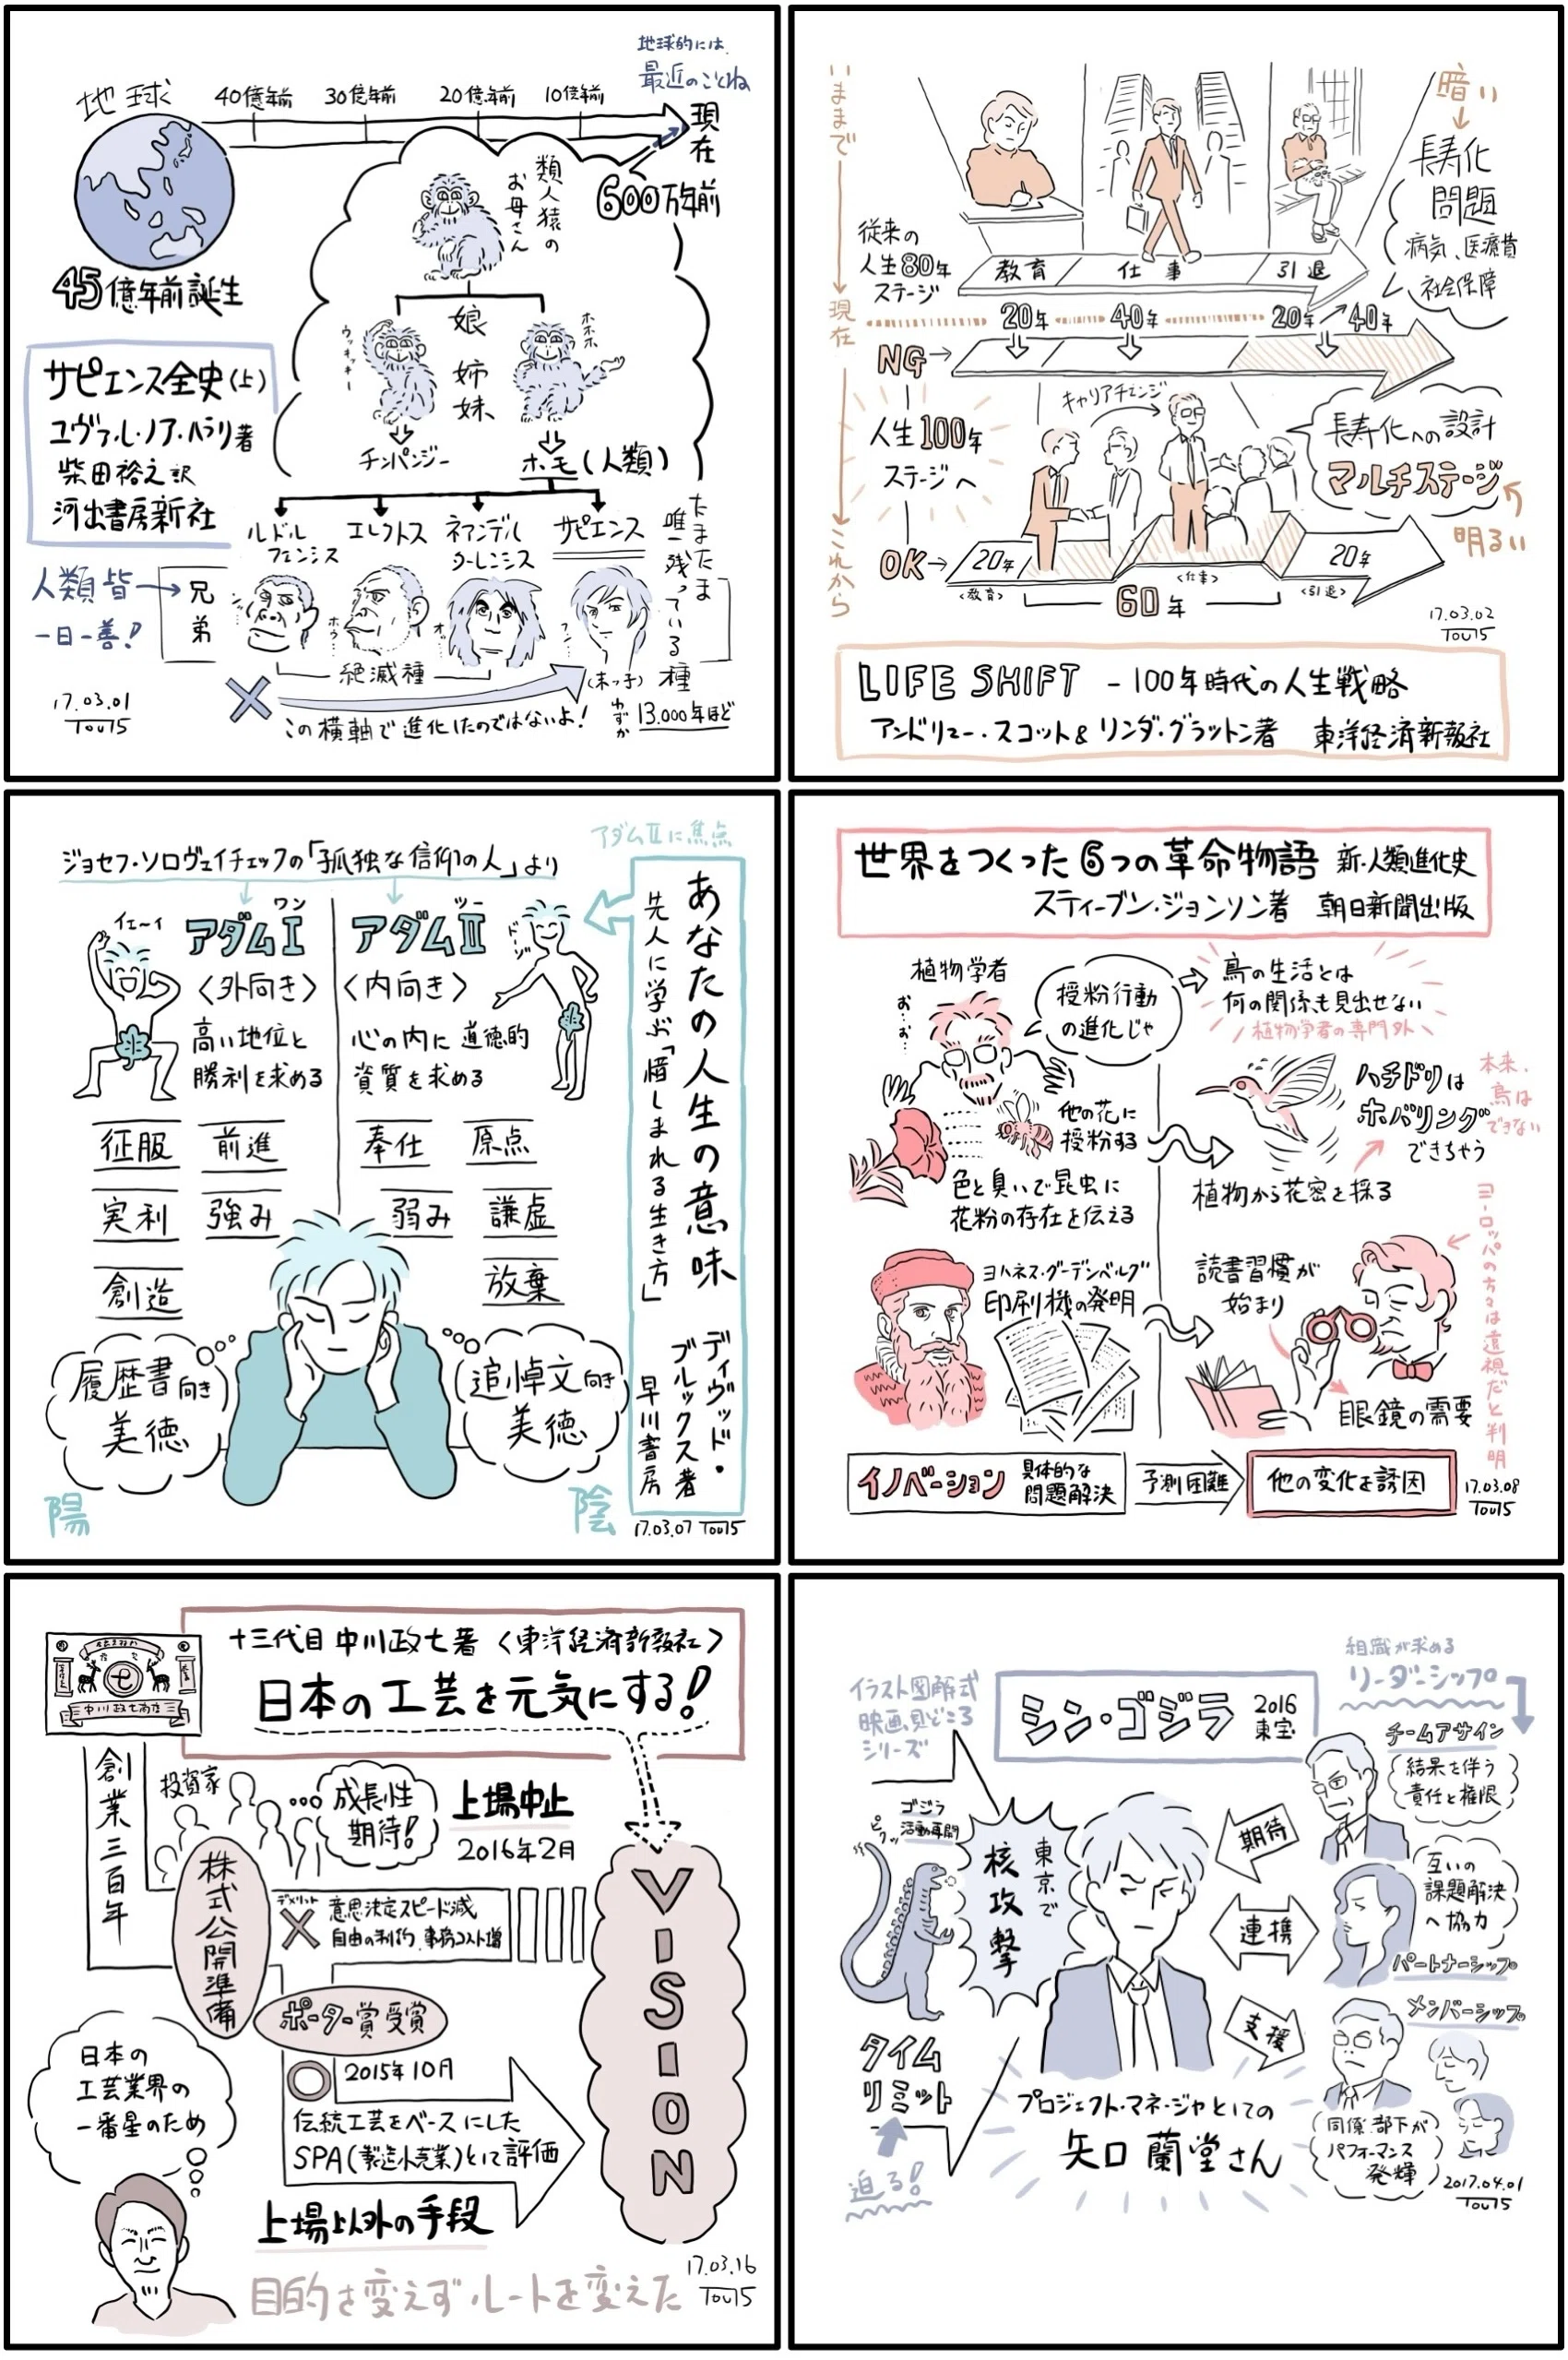 地球
40億年前
30億年前
20億年前
10億年前
地球的には、
最近のことね
現在
600万年前
45億年前誕生
類人猿の
お母さん
娘
姉妹
ウッキッキー
ホホホ
チンパンジー
ホモ(人類)
サピエンス全史(上)
ユヴァル・ノア・ハラリ著
柴田裕之訳
河出書房新社
ルドル
フェンシス
エレクトス
ネアンデル
ターレンシス
サピエンス
たまたま
唯一残っている
種
人類皆
一日一善!
兄弟
絶滅種
(末っ子)
この横軸で進化したのではないよ!
わずか
13,000年ほど
17.03.01
TOU15
いままで
現在
これから
暗い
長寿化
問題
病気、医療費
社会保障
従来の
人生80年
ステージ
教育
仕事
引退
20年
40年
20年
40年
NG
人生100年
ステージへ
OK
キャリアチェンジ
長寿化への設計
マルチステージ
明るい
20年
<教育>
<仕事>
60年
20年
<引退>
17.03.02
TOU15
LIFE SHIFT - 100年時代の人生戦略
アンドリュー・スコット&リンダ・グラットン著 東洋経済新報社
アダムⅡに焦点
ジョセフ・ソロヴェイチェックの「孤独な信仰の人」より
イェーイ
ワン
アダムⅠ
<外向き>
高い地位と
勝利を求める
ツー
アダムⅡ
<内向き>
心の内に道徳的
資質を求める
ドーゾ
征服
前進
実利
強み
創造
奉仕
原点
弱み
謙虚
放棄
履歴書向き
美徳
追悼文向き
美徳
陽
陰
あなたの人生の意味
先人に学ぶ「惜しまれる生き方」
ディヴッド・
ブルックス著
早川書房
17.03.07 TOU15
世界をつくった6つの革命物語 新・人類進化史
スティーブン・ジョンソン著 朝日新聞出版
植物学者
お…お…
授粉行動
の進化じゃ
鳥の生活とは
何の関係も見出せない
植物学者の専門外
他の花に
授粉する
色と臭いで昆虫に
花粉の存在を伝える
ハチドリは
ホバリング
できちゃう
本来、
鳥は
できない
植物から花密を採る
ヨハネス・グーデンベルグ
印刷機の発明
読書習慣が
始まり
眼鏡の需要
ヨーロッパの方々は遠視だと判明
イノベーション
具体的な
問題解決
予測困難
他の変化を誘因
17.03.08
TOU15
中川政七商店
十三代目 中川政七著 <東洋経済新報社>
日本の工芸を元気にする!
創業三百年
投資家
成長性
期待!
上場中止
2016年2月
株式公開準備
デメリット
意思決定スピード減
自由の制約、事務コスト増
ポーター賞受賞
2015年10月
伝統工芸をベースにした
SPA(製造小売業)として評価
VISION
日本の
工芸業界の
一番星のため
上場以外の手段
目的を変えずルートを変えた
17.03.16
TOU15
イラスト図解式
映画、見どころ
シリーズ
シン・ゴジラ
2016
東宝
組織が求める
リーダーシップ
ゴジラ
活動再開
ピクッ
東京で
核攻撃
タイム
リミット
迫る!
期待
連携
支援
チームアサイン
結果を伴う
責任と権限
互いの
課題解決
へ協力
パートナーシップ
メンバーシップ
同僚、部下が
パフォーマンス
発揮
プロジェクト・マネージャとしての
矢口蘭堂さん
2017.04.01
TOU15